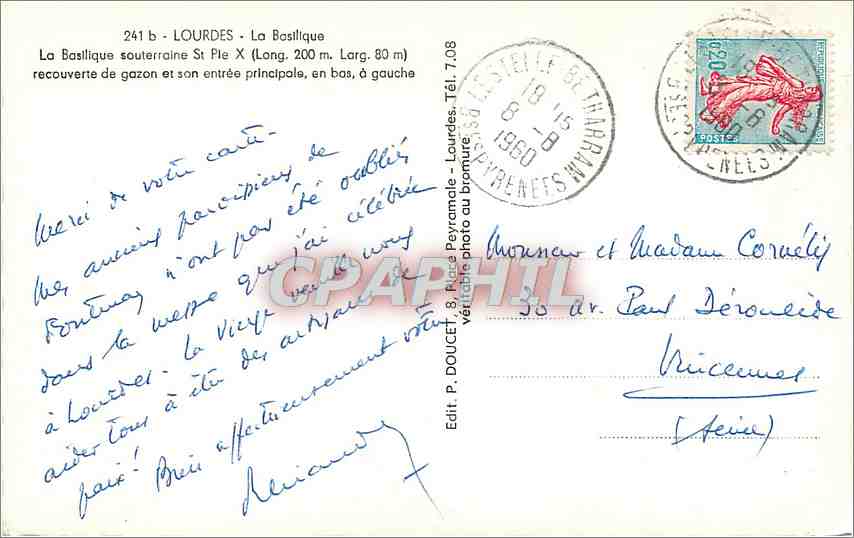 241 b - LOURDES - La Basilique
La Basilique souterraine St Pie X (Long. 200 m. Larg. 80 m)
recouverte de gazon et son entrée principale, en bas, à gauche
Merci de votre carte -
Mes anciens paroissiens de
Fontenay n'ont pas été oubliés
dans la messe que j'ai célébrée
à Lourdes - La Vierge veuille nous
aider tous à être des artisans de
paix ! Bien affectueusement vôtre
Edit. P. DOUCET, 8, Place Peyramale - Lourdes. Tél. 7.08
véritable photo au bromure
LESTELLE-BETHARRAM
18 15
8 -8
1960
BSES PYRENEES
0,20
POSTES
Monsieur et Madame Cornélis
30 av. Paul Déroulède
Vincennes
(Seine)
CPAPHIL